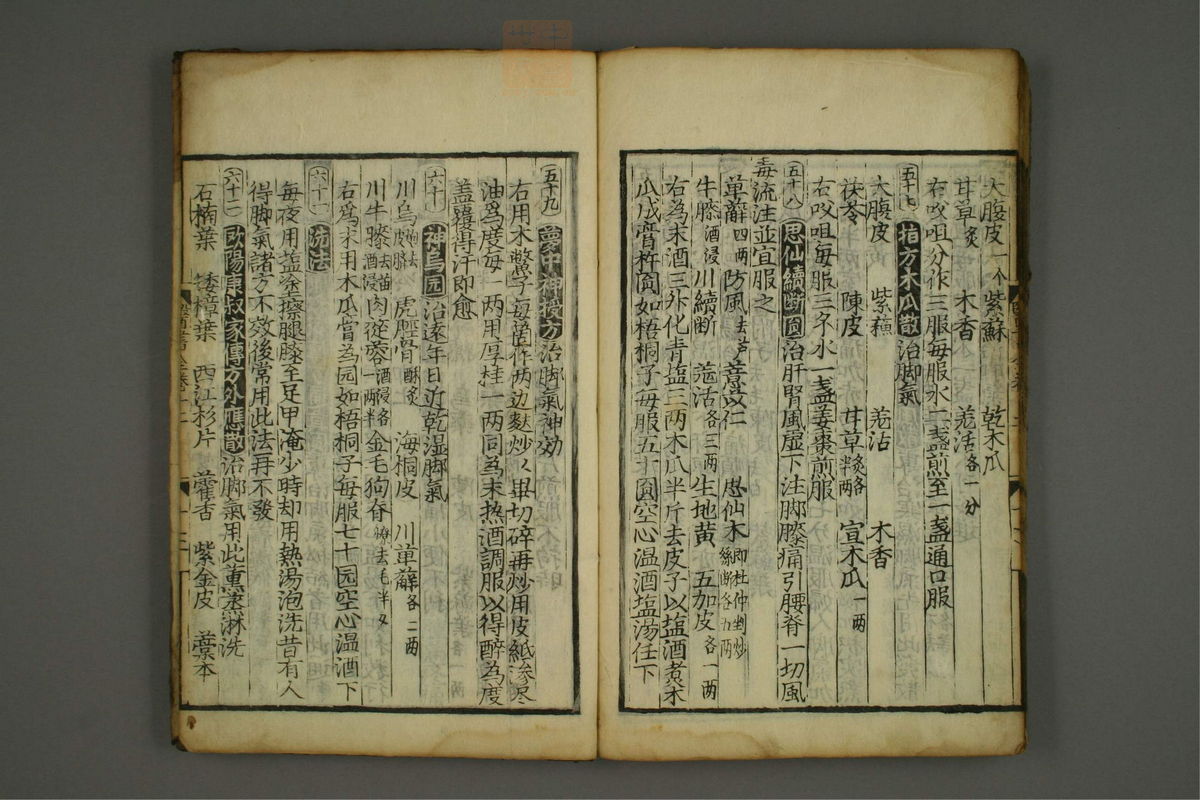 大腹皮一个 紫蘇 乾木瓜
甘草炙 木香 羗活各一分
右㕮咀分作三服每服水一盞煎至一盞通口服
五十七 指方木瓜散治脚氣
大腹皮 紫蘇 羗活 木香
茯苓 陳皮 甘草炙各半兩 宣木瓜一两
右㕮咀每服三錢水一盞姜棗煎服
五十八 思仙續断圓治肝腎風虚下注脚膝痛引腰脊一切風
毒流注並宜服之
萆薢四两 防風去芦 薏苡仁 思仙木即杜仲剉炒絲断各五两
牛膝酒浸 川續断 羗活各三两 生地黄 五加皮各一两
右為末酒三升化青塩三两木瓜半斤去皮子以塩酒煮木
瓜成膏杵圓如梧桐子毎服五十圓空心温酒塩湯任下
五十九 夢中神授方治脚氣神効
右用木鱉子每箇作两边麩炒令畢切碎再炒用皮紙滲尽
油為度每一两用厚桂一两同為末热酒調服以得醉為度
盖覆得汗即愈
六十 神烏园治遠年日近乾湿脚氣
川烏炮去皮臍 虎脛骨酥炙 海桐皮 川萆薢各二两
川牛膝去苗酒浸 肉苁蓉酒浸各一两半 金毛狗脊燎去毛半两
右為末用木瓜膏為园如梧桐子每服七十园空心温酒下
六十一 洗法
每夜用塩塗擦腿膝至足甲淹少時却用熱湯泡洗昔有人
得脚氣諸方不效後常用此法再不發
六十二 歐陽康叔家傳方外應散治脚氣用此薫蒸淋洗
石楠葉 矮樟葉 西江杉片 藿香 紫金皮 藁本